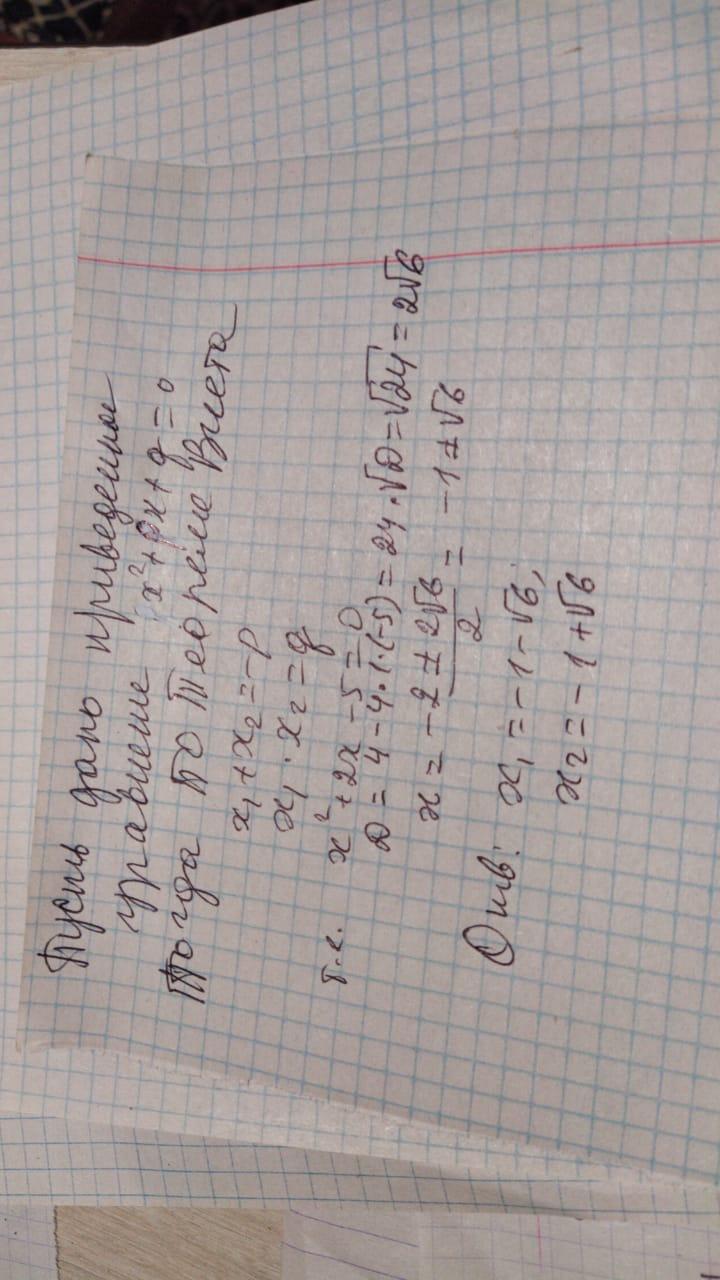 Пусть дано приведенное
уравнение x²+px+q=0
Тогда по Теореме Виета
x₁+x₂=-p
x₁·x₂=q
т.е. x²+2x-5=0
D=4-4·1·(-5)=24·√D=√24=2√6
x=-2±2√6/2=-1±√6
Отв: x₁=-1-√6;
x₂=-1+√6